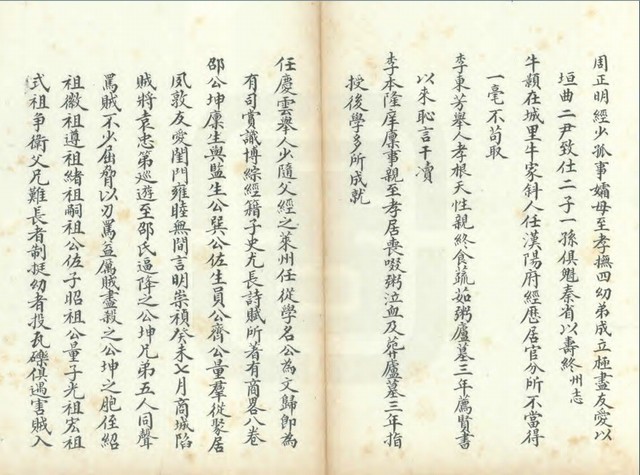 周正明經少孤事孀母至孝撫四幼弟成立極盡友愛以
垣曲二尹致仕二子一孫俱魁秦省以壽終州志
牛顥在城里牛家斜人任漢陽府經歷居官分所不當得
一毫不苟取
李東芳舉人孝根天性親終食蔬茹粥廬墓三年薦賢書
以來恥言干瀆
李本隆庠廩事親至孝居喪啜粥泣血及葬廬墓三年指
授後學多所成就
任慶雲舉人少隨父經之萊州任從學名公為文歸即為
有司賞識博綜經籍子史尤長詩賦所著有商畧八卷
邵公坤廩生與監生公巽公佐生員公齊公量羣從聚居
夙敦友愛閨門雍睦無間言明崇禎癸未七月商城陷
賊將袁忠第巡遊至邵氏逼降之公坤兄弟五人同聲
罵賊不少屈脅以刃罵益厲賊盡殺之公坤之胞侄紹
祖徽祖遵祖緒祖嗣祖公佐子昭祖公量子光祖宏祖
式祖爭衛父兄難長者制挺幼者投瓦礫俱遇害賊入